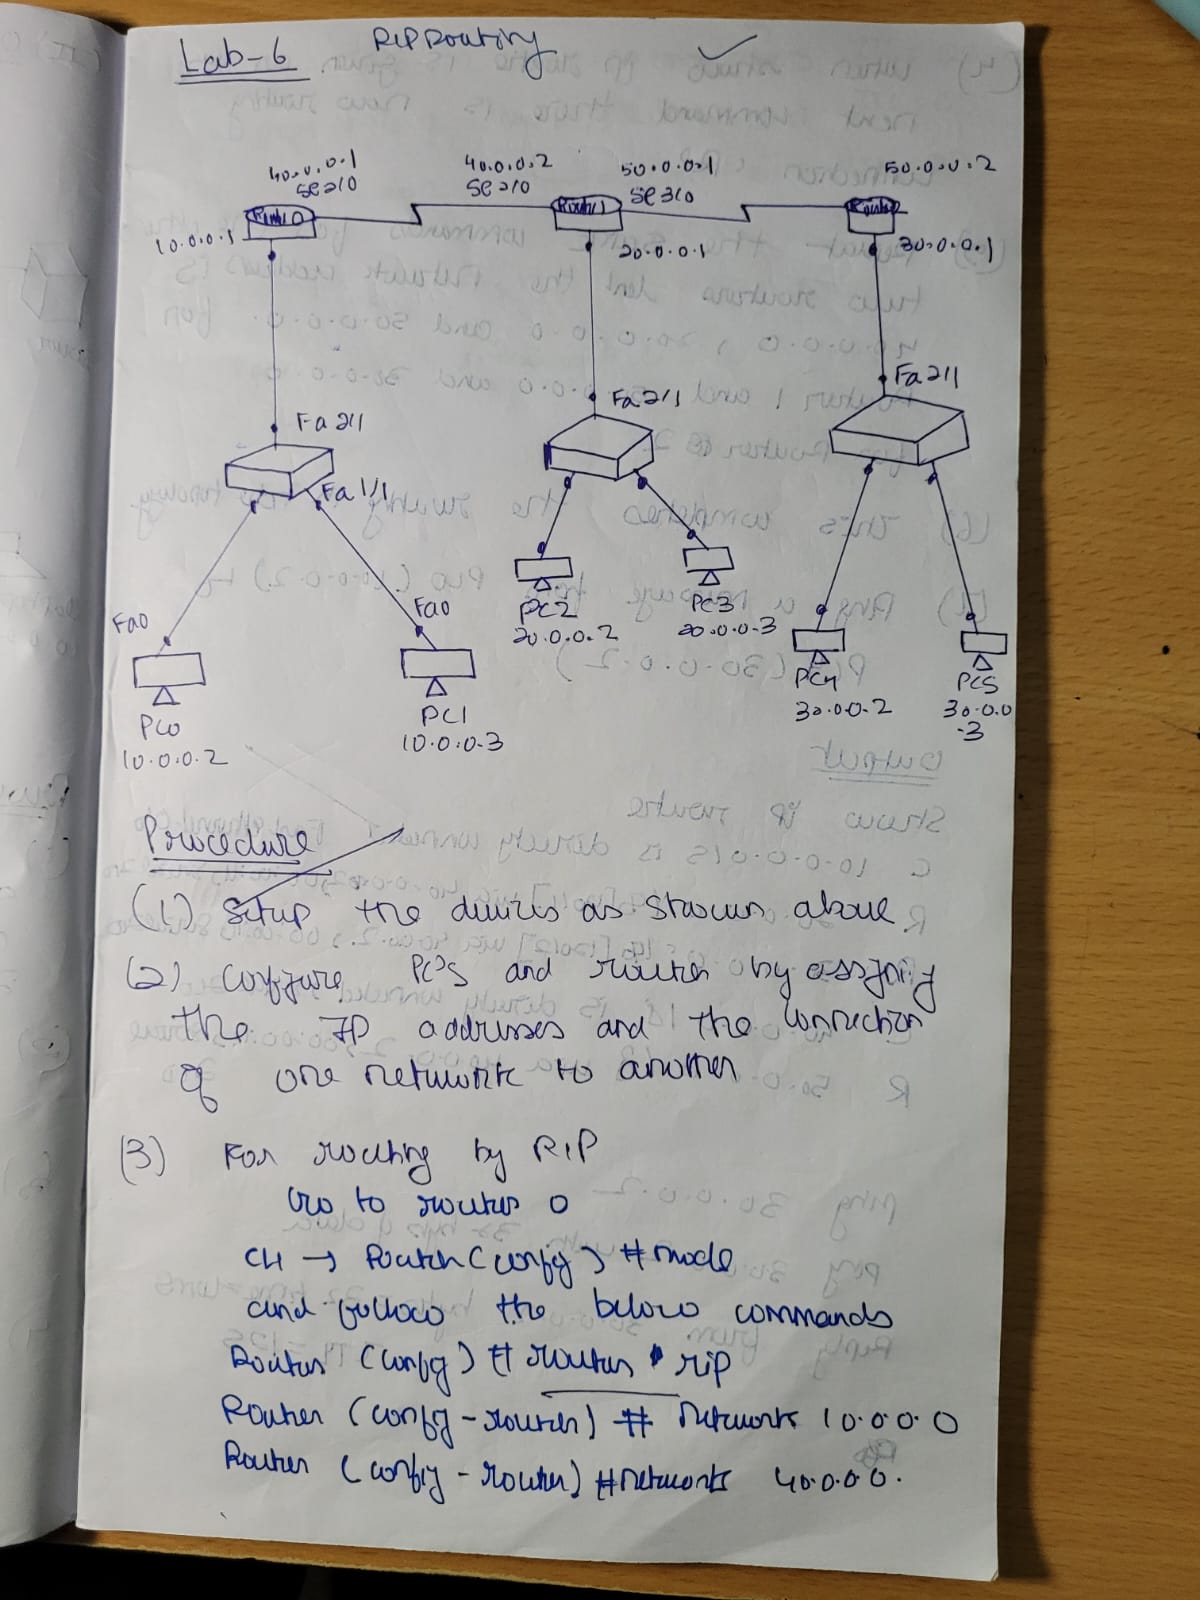 Lab-6
RIP Routing
40.0.0.1
Se2/0
40.0.0.2
Se2/0
50.0.0.1
Se3/0
50.0.0.2
Router0
Router1
10.0.0.1
20.0.0.1
30.0.0.1
Fa2/1
Fa2/1
Fa2/1
Fa1/1
Fa0
Fa0
PC0
10.0.0.2
PC1
10.0.0.3
PC2
20.0.0.2
PC3
20.0.0.3
PC4
30.0.0.2
PC5
30.0.0
.3
Procedure
(1) Setup the devices as shown above
(2) configure PC's and router by assgnig
the IP addresses and the connection
of one network to another
(3) For routing by RIP
Go to router 0
CLI → Router (config) # mode
and follow the below commands
Router (config) # router rip
Router (config-router) # network 10.0.0.0
Router (config-router) # network 40.0.0.0.